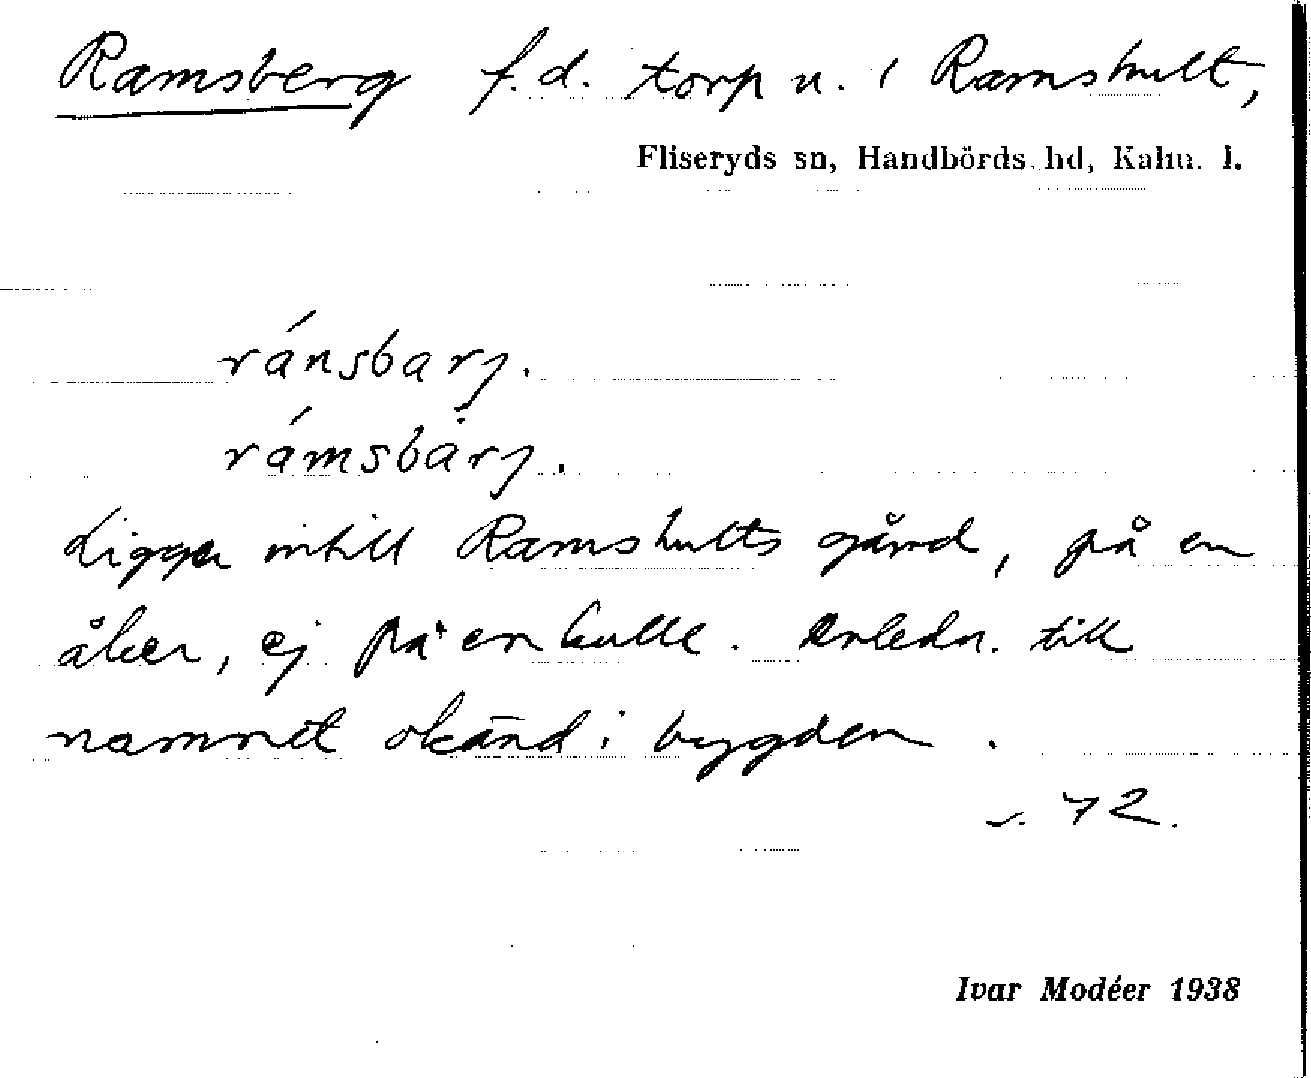 Ramsberg f.d. torp u. 1 Ramshult,
Fliseryds sn, Handbörds hd, Kalm. l.
ránsbarj.
rámsbärj.
Ligger intill Ramshults gård, på en
åker, ej på en kulle. Anledn. till
namnet okänd i bygden.
s. 72.
Ivar Modéer 1938